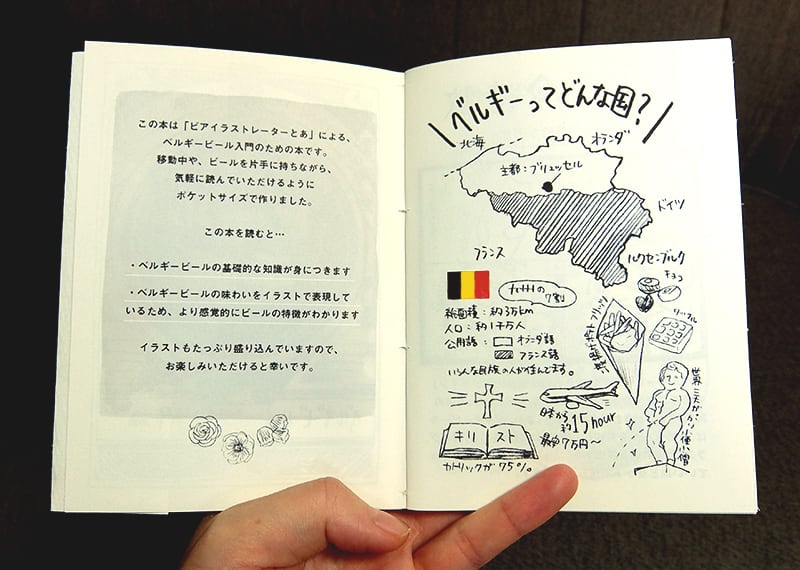 この本は「ビアイラストレーターとあ」による、
ベルギービール入門のための本です。
移動中や、ビールを片手に持ちながら、
気軽に読んでいただけるように
ポケットサイズで作りました。
この本を読むと…
・ベルギービールの基礎的な知識が身につきます
・ベルギービールの味わいをイラストで表現して
いるため、より感覚的にビールの特徴がわかります
イラストもたっぷり盛り込んでいますので、
お楽しみいただけると幸いです。
\ベルギーってどんな国?/
北海
オランダ
主都:ブリュッセル
ドイツ
フランス
ルクセンブルク
チョコ
九州の
7割
総面積:約3万km
人口:約1千万人
公用語:
オランダ語
フランス語
いろんな民族の人が住んでます。
ワッフル
ポテト フリッツ
日本から
約15hour
最安7万円〜
キリスト
カトリックが75%。
世界三大がっかり小便小僧